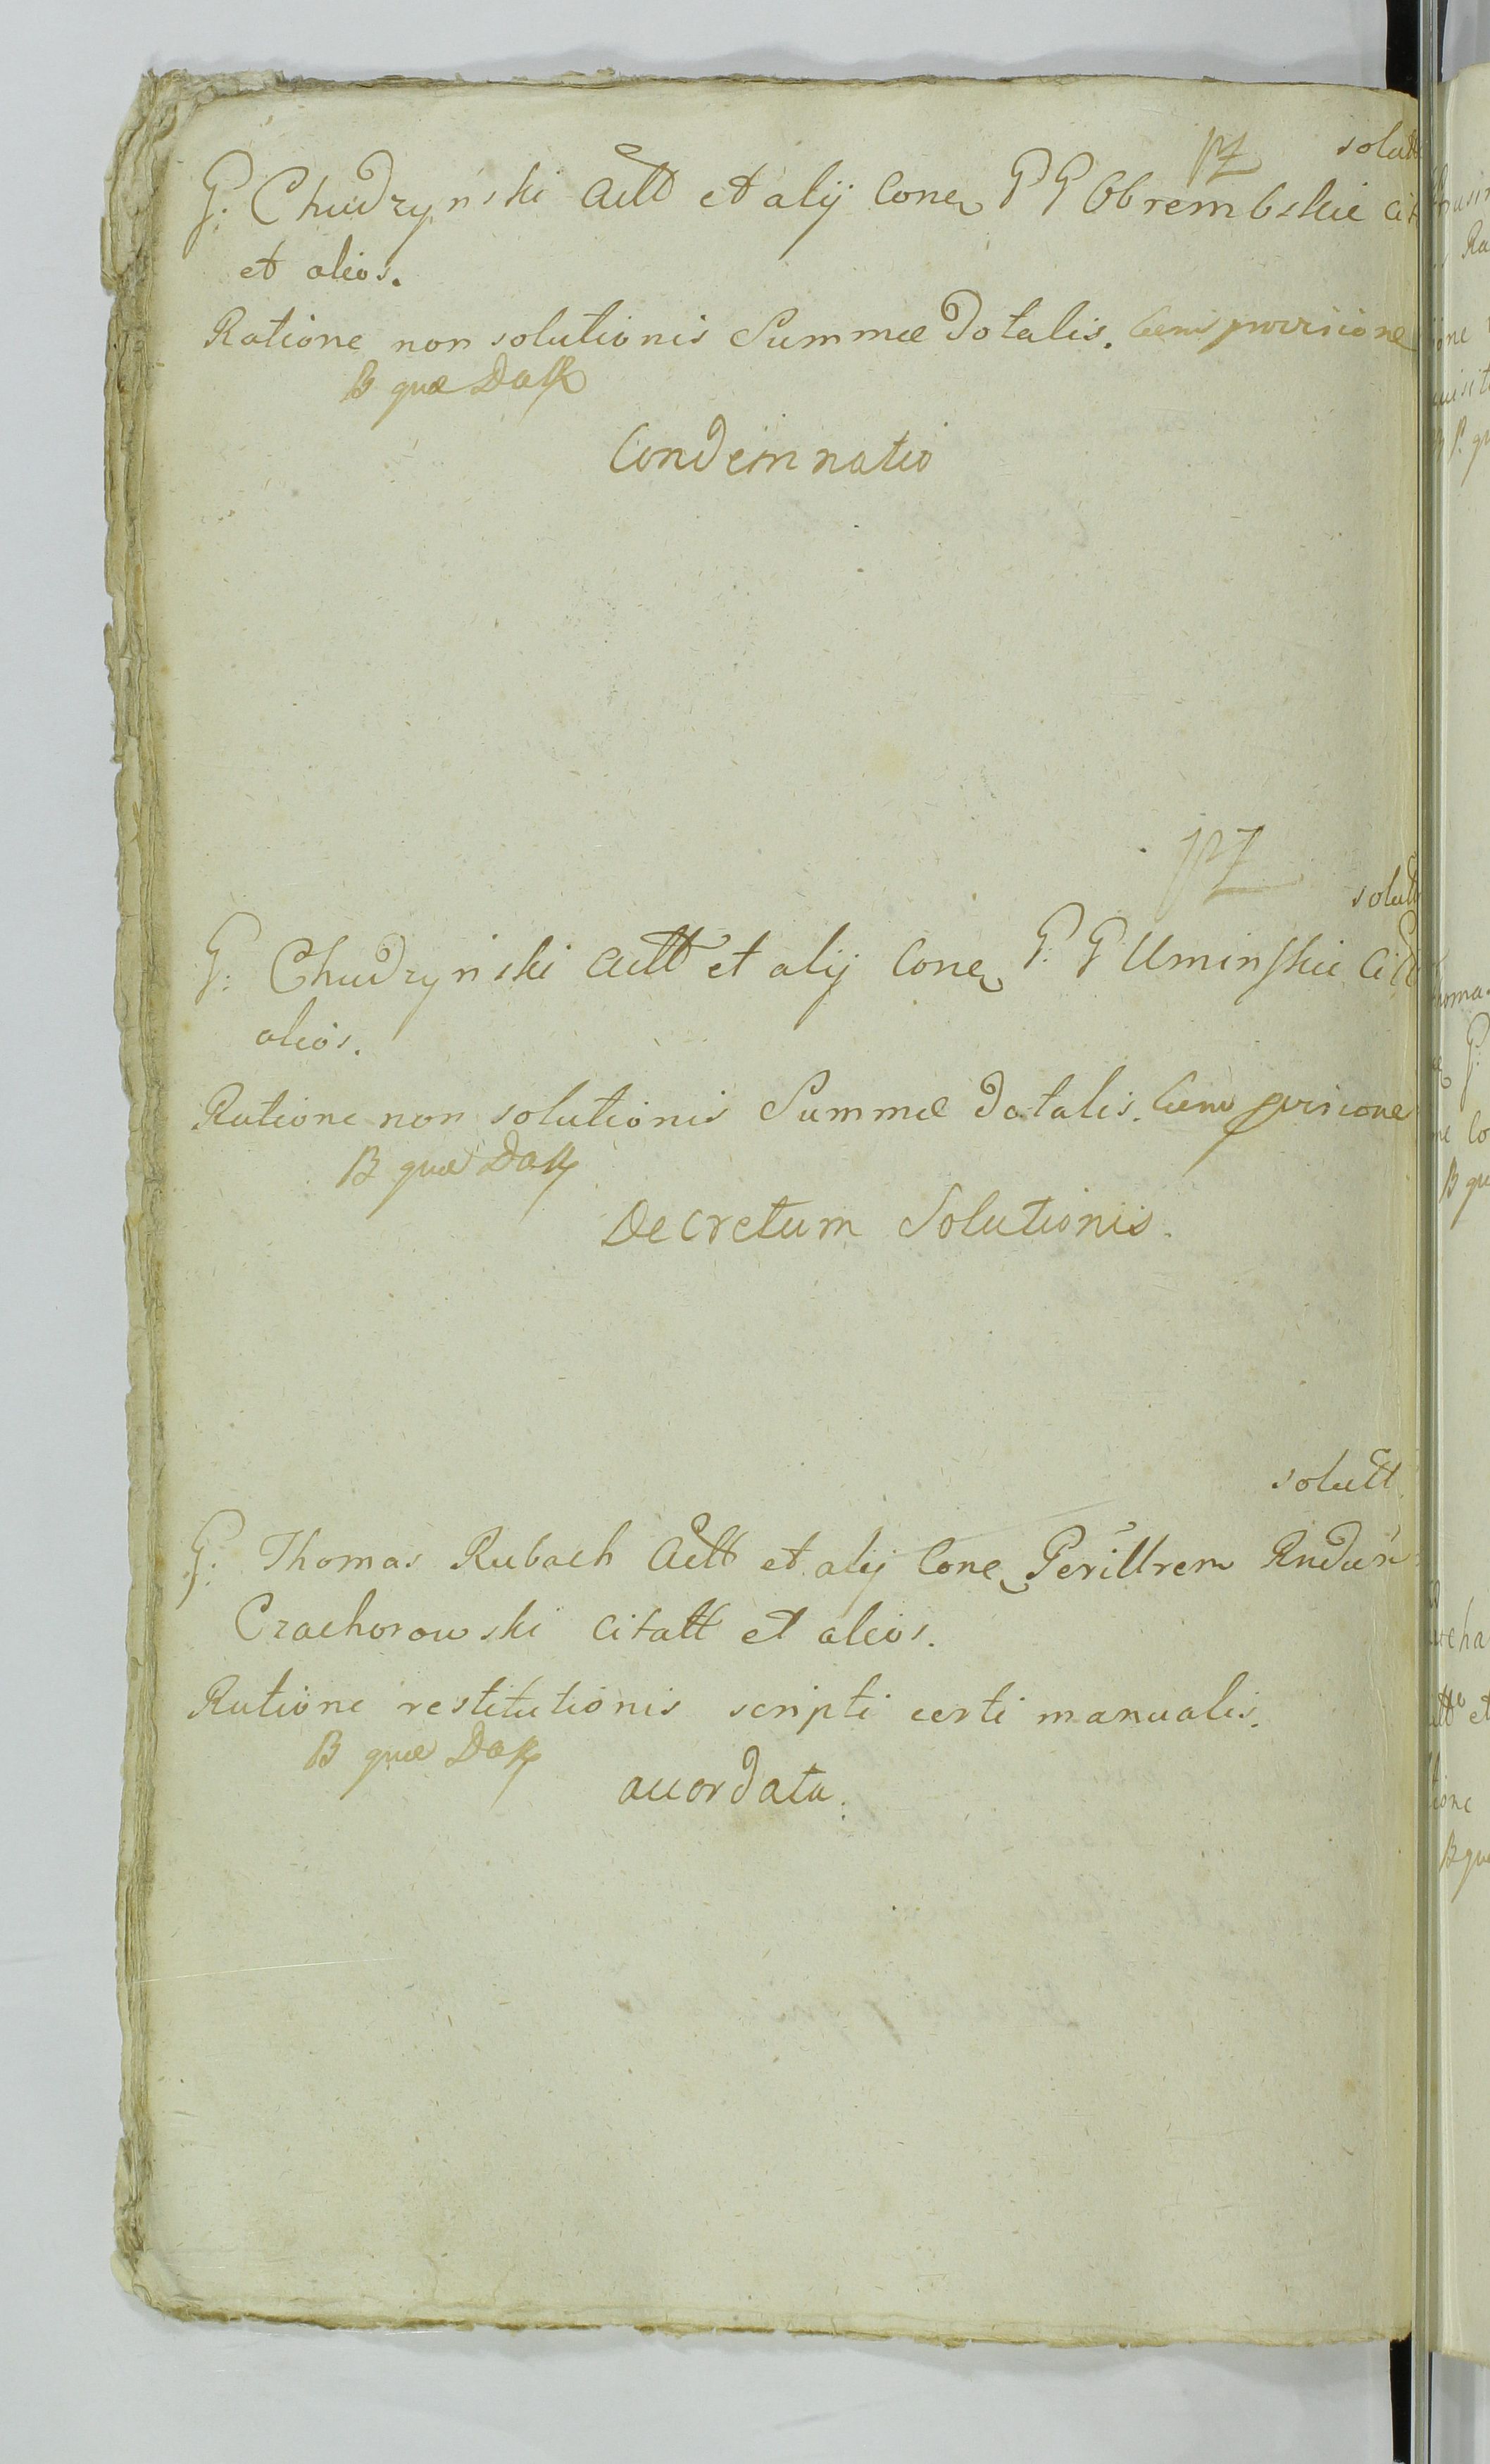 solutt
G. Chudzynski Actt et alij Cone G G Obrembskie cit
et alios.
Ratione non solutionis Summæ Dotalis. Cum provisione
B quæ
Condemnatio
solutt
G. Chudzynski Actt et alij Cone G. G Uminskie Citt
alios.
Ratione non solutionis Summæ dotalis. Cum provisione
B quæ
Decretum Solutionis.
solutt.
G. Thomas Rubach Actt et alij Cone Perillrem Rndum
Czachorowski citatt et alios.
Ratione restitutionis scripti certi manualis.
B quæ
accordata.